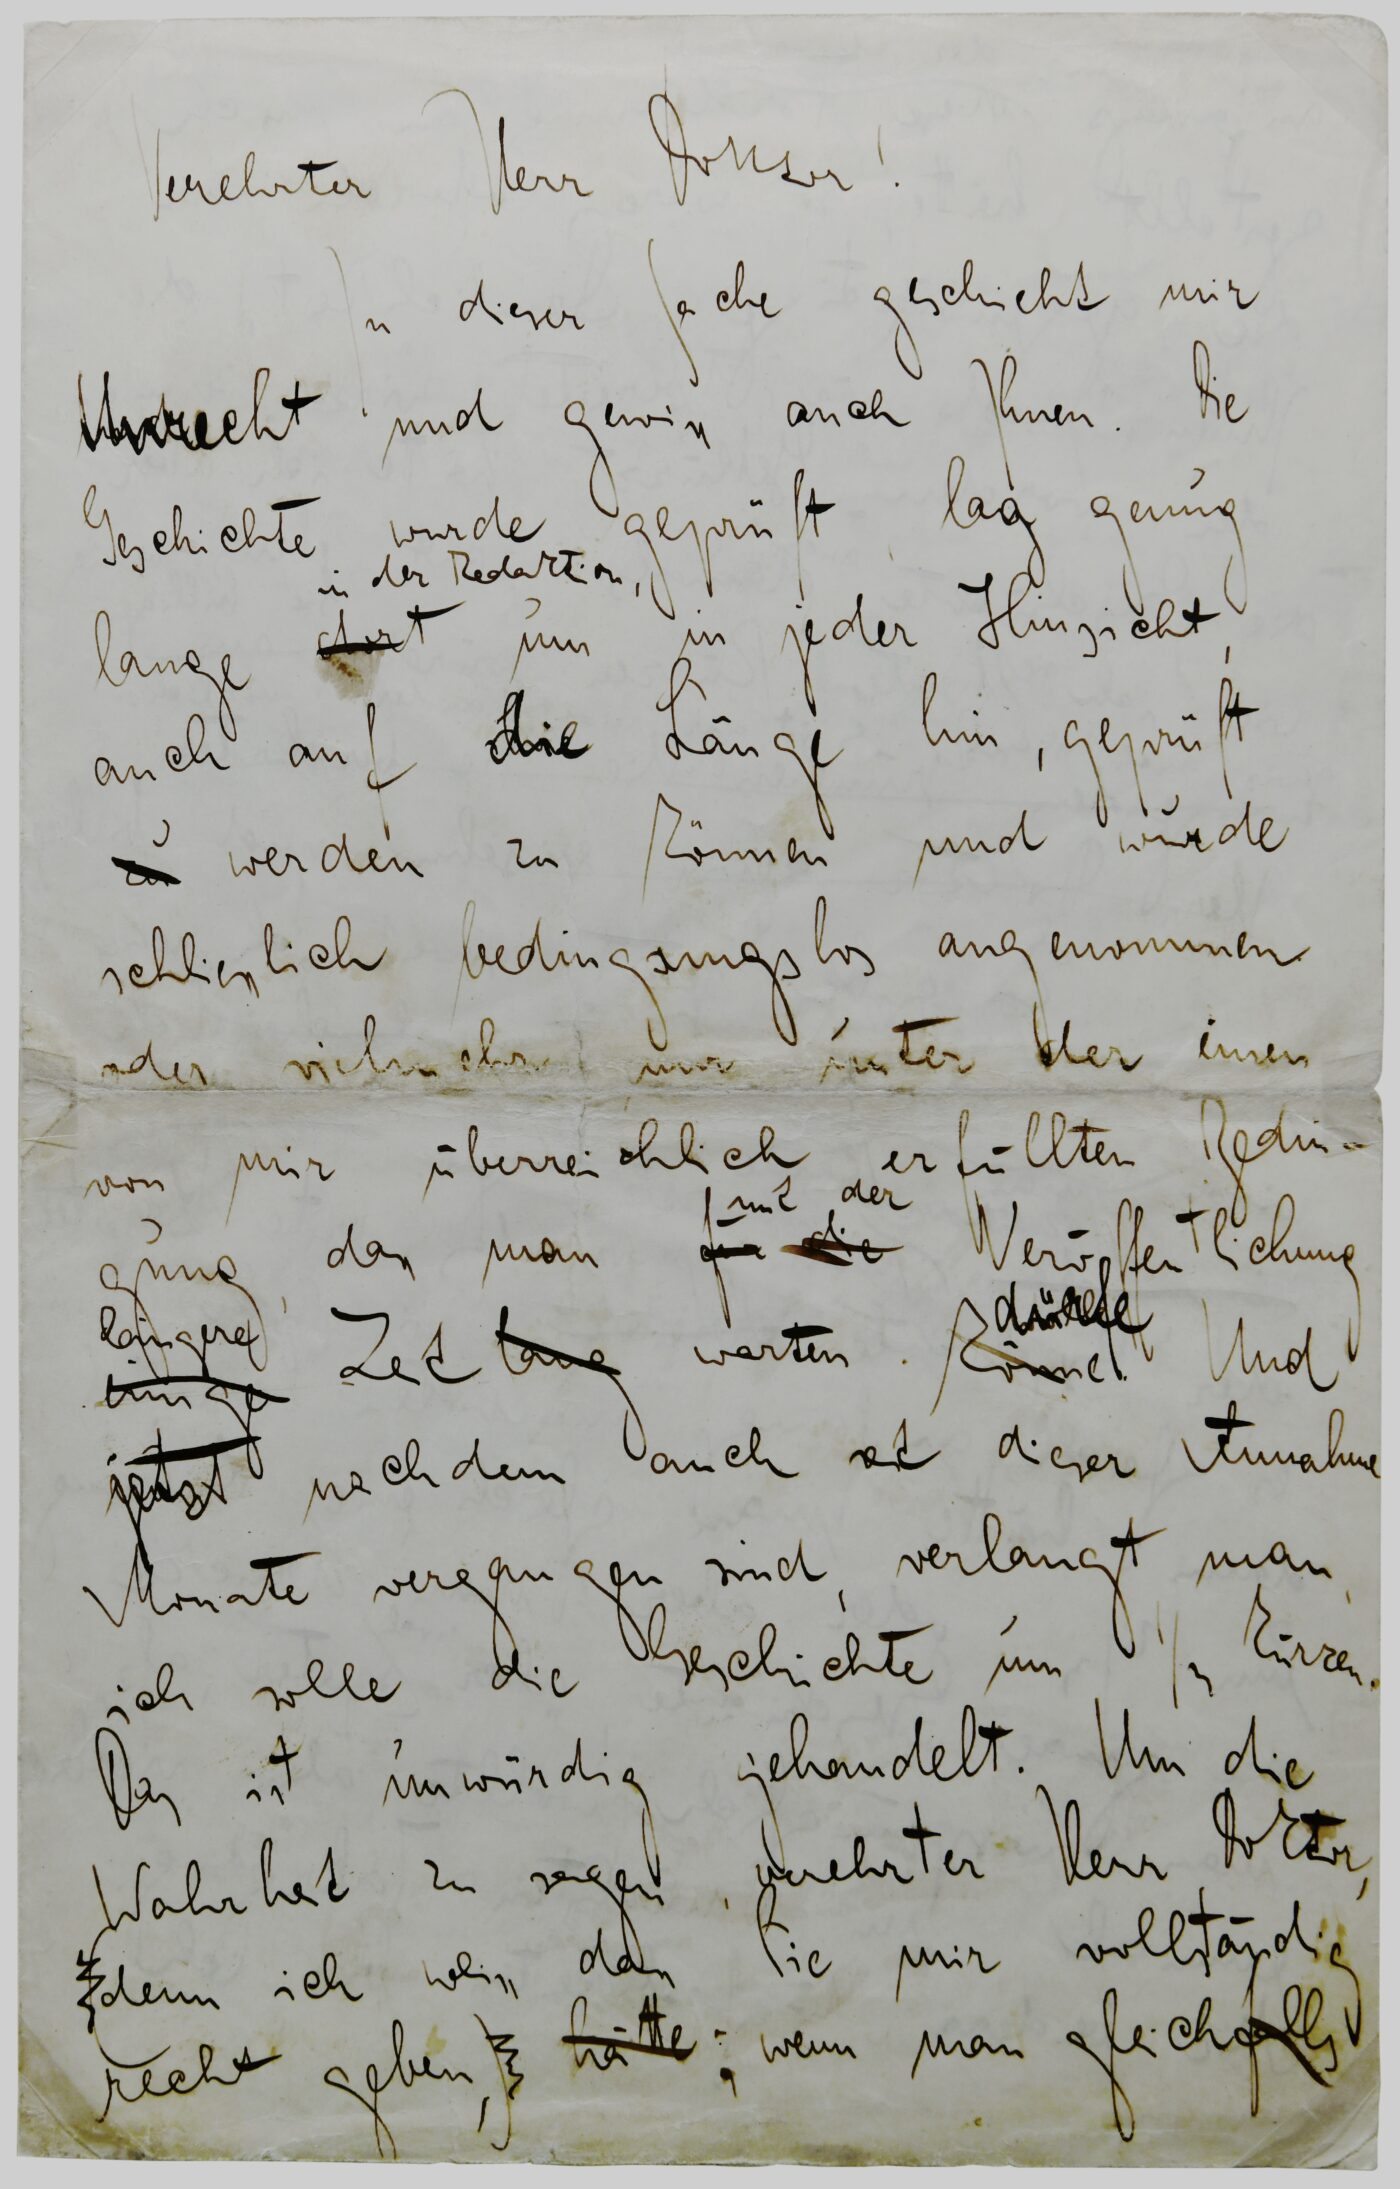 Verehrter Herr Doktor!
In dieser Sache geschieht mir
Unrecht und gewiß auch Ihnen. Die
Geschichte wurde geprüft, lag genug
in der Redaktion,
lange dort um in jeder Hinsicht,
auch auf die Länge hin, geprüft
zu werden zu können und wurde
schließlich bedingungslos angenommen
oder vielmehr nur unter der einen
von mir überreichlich erfüllten Bedin-
gung, daß man für die Veröffentlichung
mit der
längere dürfe
einige Zeit lang warten könne. Und
jetzt nachdem auch seit dieser Annahme
Monate vergangen sind, verlangt man,
ich solle die Geschichte um 1/3 kürzen.
Das ist unwürdig gehandelt. Um die
Wahrheit zu sagen, verehrter Herr Doktor,
denn ich weiß daß Sie mir vollständig
recht geben, hätte; wenn man gleichfalls